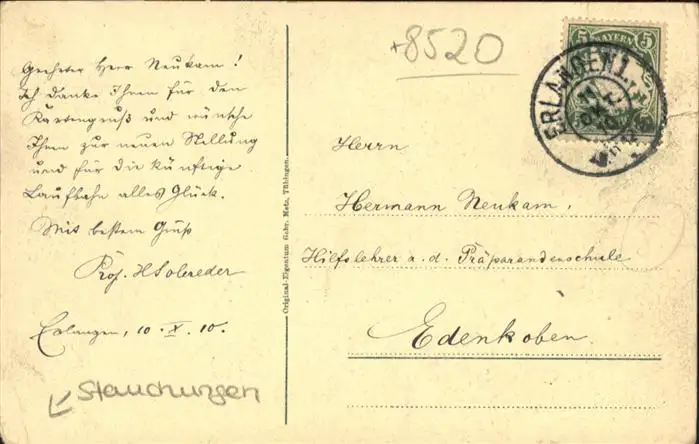 Geehrter Herr Neukam!
Ich danke Ihnen für den
Kartengruß und wünsche
Ihnen zur neuen Stellung
und für die künftige
Laufbahn alles Glück.
Mit bestem Gruß
Prof. H Solereder
Erlangen, 10. X. 10.
Stauchungen
Original-Eigentum Gebr. Metz, Tübingen.
+8520
5 BAYERN 5
ERLANGEN 1.
Herrn
Hermann Neukam,
Hilfslehrer a. d. Präparandenschule
Edenkoben.